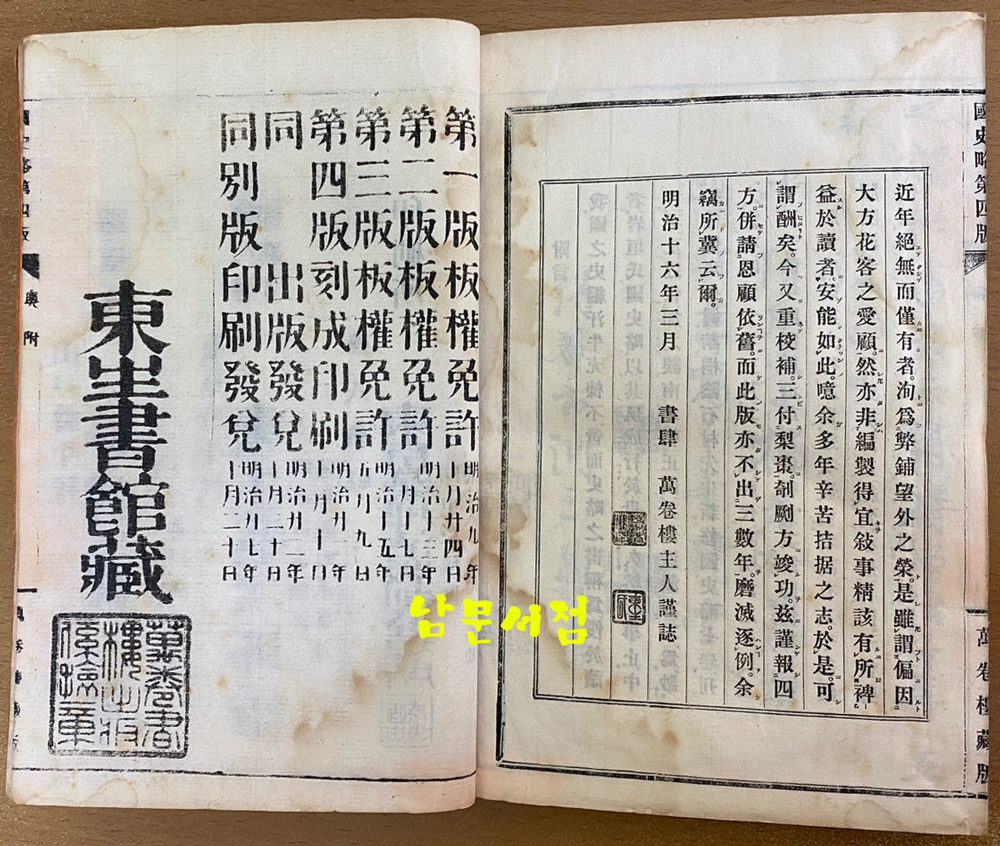 國史略第四版
萬卷樓藏版
近年絕無而僅有者。洵爲弊鋪望外之榮。是雖謂偏因
大方花客之愛顧。然亦非編製得宜敍事精該有所裨
益於讀者。安能如此。噫余多年辛苦拮据之志。於是可
謂酬矣。今又重校補。三付梨棗剞劂方竣功。玆謹報四
方。併請恩顧依舊。而此版亦不出三數年。磨滅逐例。余
竊所冀云爾。
明治十六年三月 書肆 萬卷樓主人謹誌
第一版板權免許 明治九年十月廿四日
第二版板權免許 明治十三年十月十七日
第三版板權免許 明治十五年五月九日
第四版刻成印刷 明治廿年十月十日
同 出版發兌 明治廿二年十月二十日
同別版印刷發兌
東生書館藏
남문서점